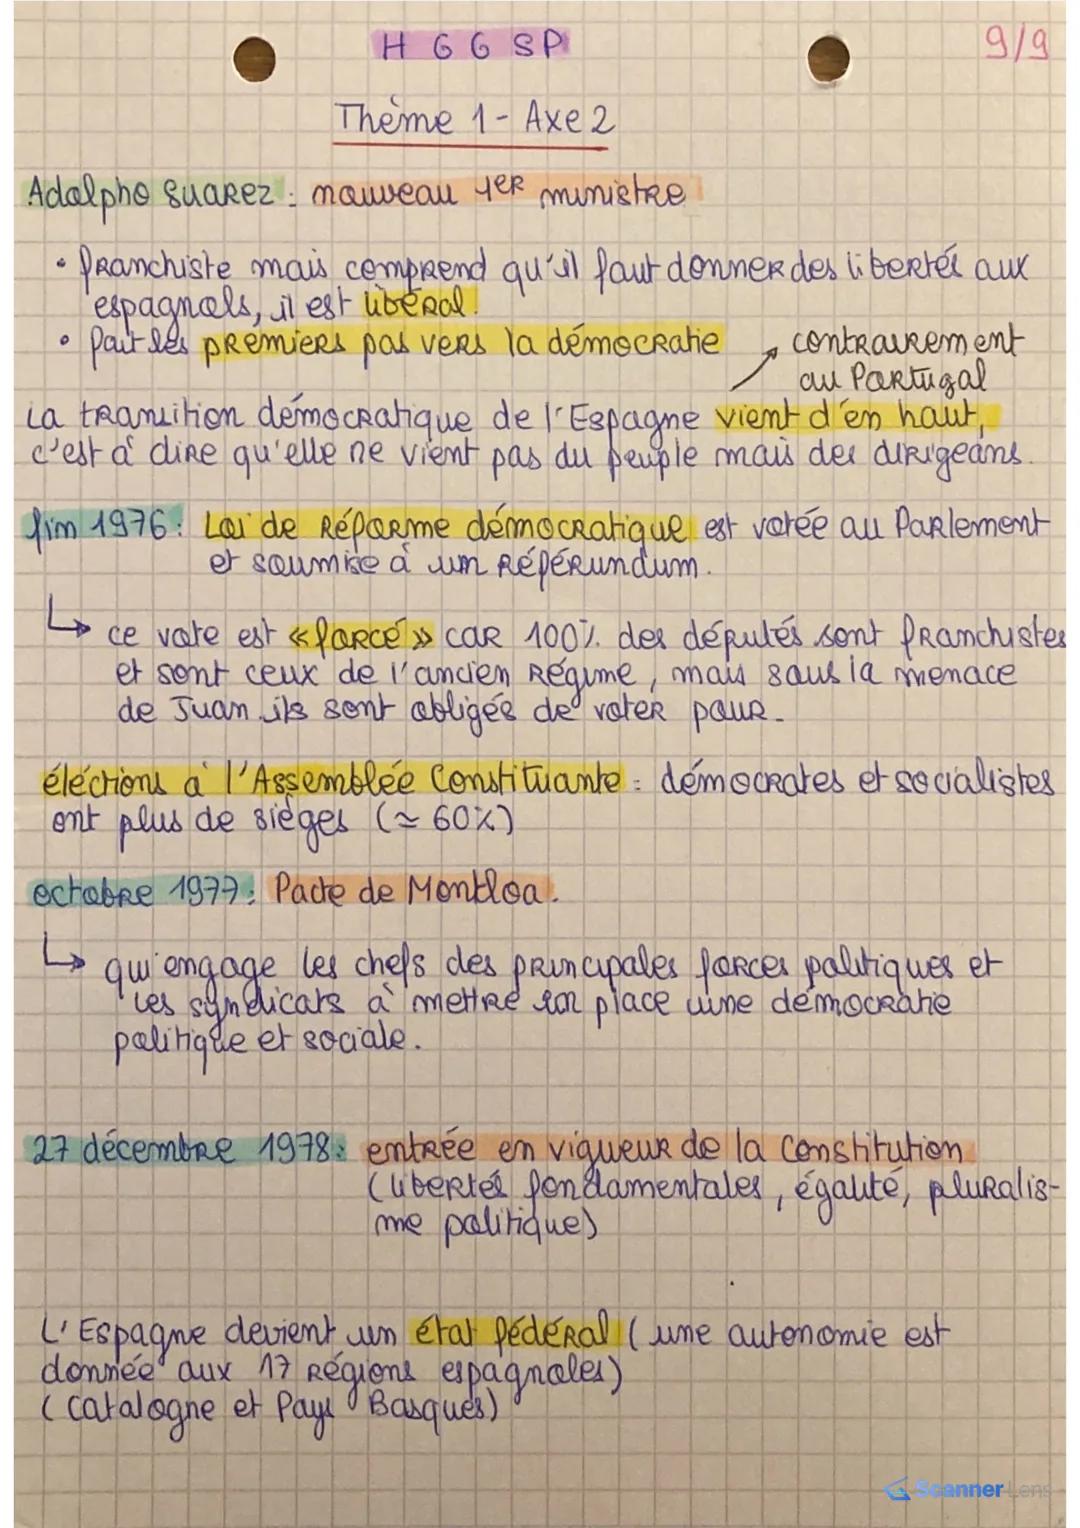 HGGSP
9/9
Thème 1 - Axe 2
Adolpho Suarez : nouveau 1er ministre
• franchiste mais comprend qu'il faut donner des libertés aux
espagnols, il est libéral.
• fait les premiers pas vers la démocratie
contrairement
au Portugal
La transition démocratique de l'Espagne vient d'en haut,
c'est à dire qu'elle ne vient pas du peuple mais des dirigeans.
fin 1976 : Loi de Réforme démocratique est votée au Parlement
et soumise à un Référundum.
↳ ce vote est « forcé » car 100% des députés sont franchistes
et sont ceux de l'ancien Régime, mais sous la menace
de Juan ils sont obligés de voter pour.
éléctions à l'Assemblée Constituante : démocrates et socialistes
ont plus de sièges (≃ 60%)
octobre 1977 : Pacte de Montloa.
↳ qui engage les chefs des principales forces politiques et
les syndicats à mettre en place uine démocratie
politique et sociale.
27 décembre 1978 : entrée en vigueur de la Constitution
(libertés fondamentales, égalité, pluralis-
me politique)
L'Espagne devient un état fédéral (une autonomie est
donnée aux 17 Régions espagnoles)
(Catalogne et Pays Basques)
Scanner Lens